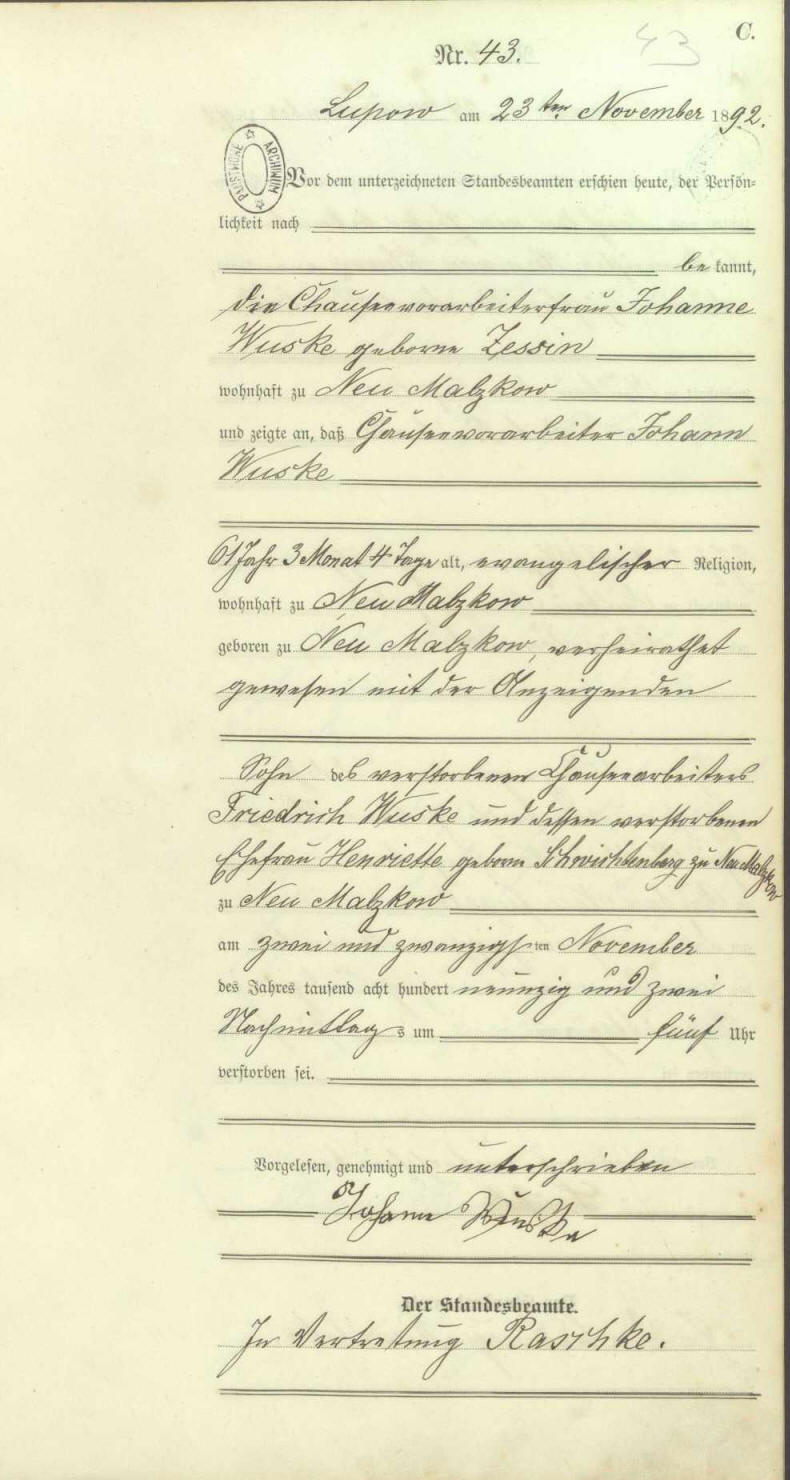 C.
43
Nr. 43.
Lupow am 23ten November 1892.
ARCHIWUM PAŃSTWOWE
Vor dem unterzeichneten Standesbeamten erschien heute, der Persön=
lichkeit nach
be kannt,
die Chausseevorarbeiterfrau Johanne
Wuske geborne Zessin
wohnhaft zu Neu Malzkow
und zeigte an, daß Chausseevorarbeiter Johann
Wuske
61 Jahr 3 Monat 4 Tage alt, evangelischer Religion,
wohnhaft zu Neu Malzkow
geboren zu Neu Malzkow, verheirathet
gewesen mit der Anzeigenden
Sohn des verstorbenen Chausseearbeiters
Friedrich Wuske und dessen verstorbenen
Ehefrau Henriette geborne Schwichtenberg zu Neu Malzkow
zu Neu Malzkow
am zwei und zwanzigsten November
des Jahres tausend acht hundert neunzig und zwei
Nachmittags um fünf Uhr
verstorben sei.
Vorgelesen, genehmigt und unterschrieben
Johanne Wuske
Der Standesbeamte.
In Vertretung Raschke.